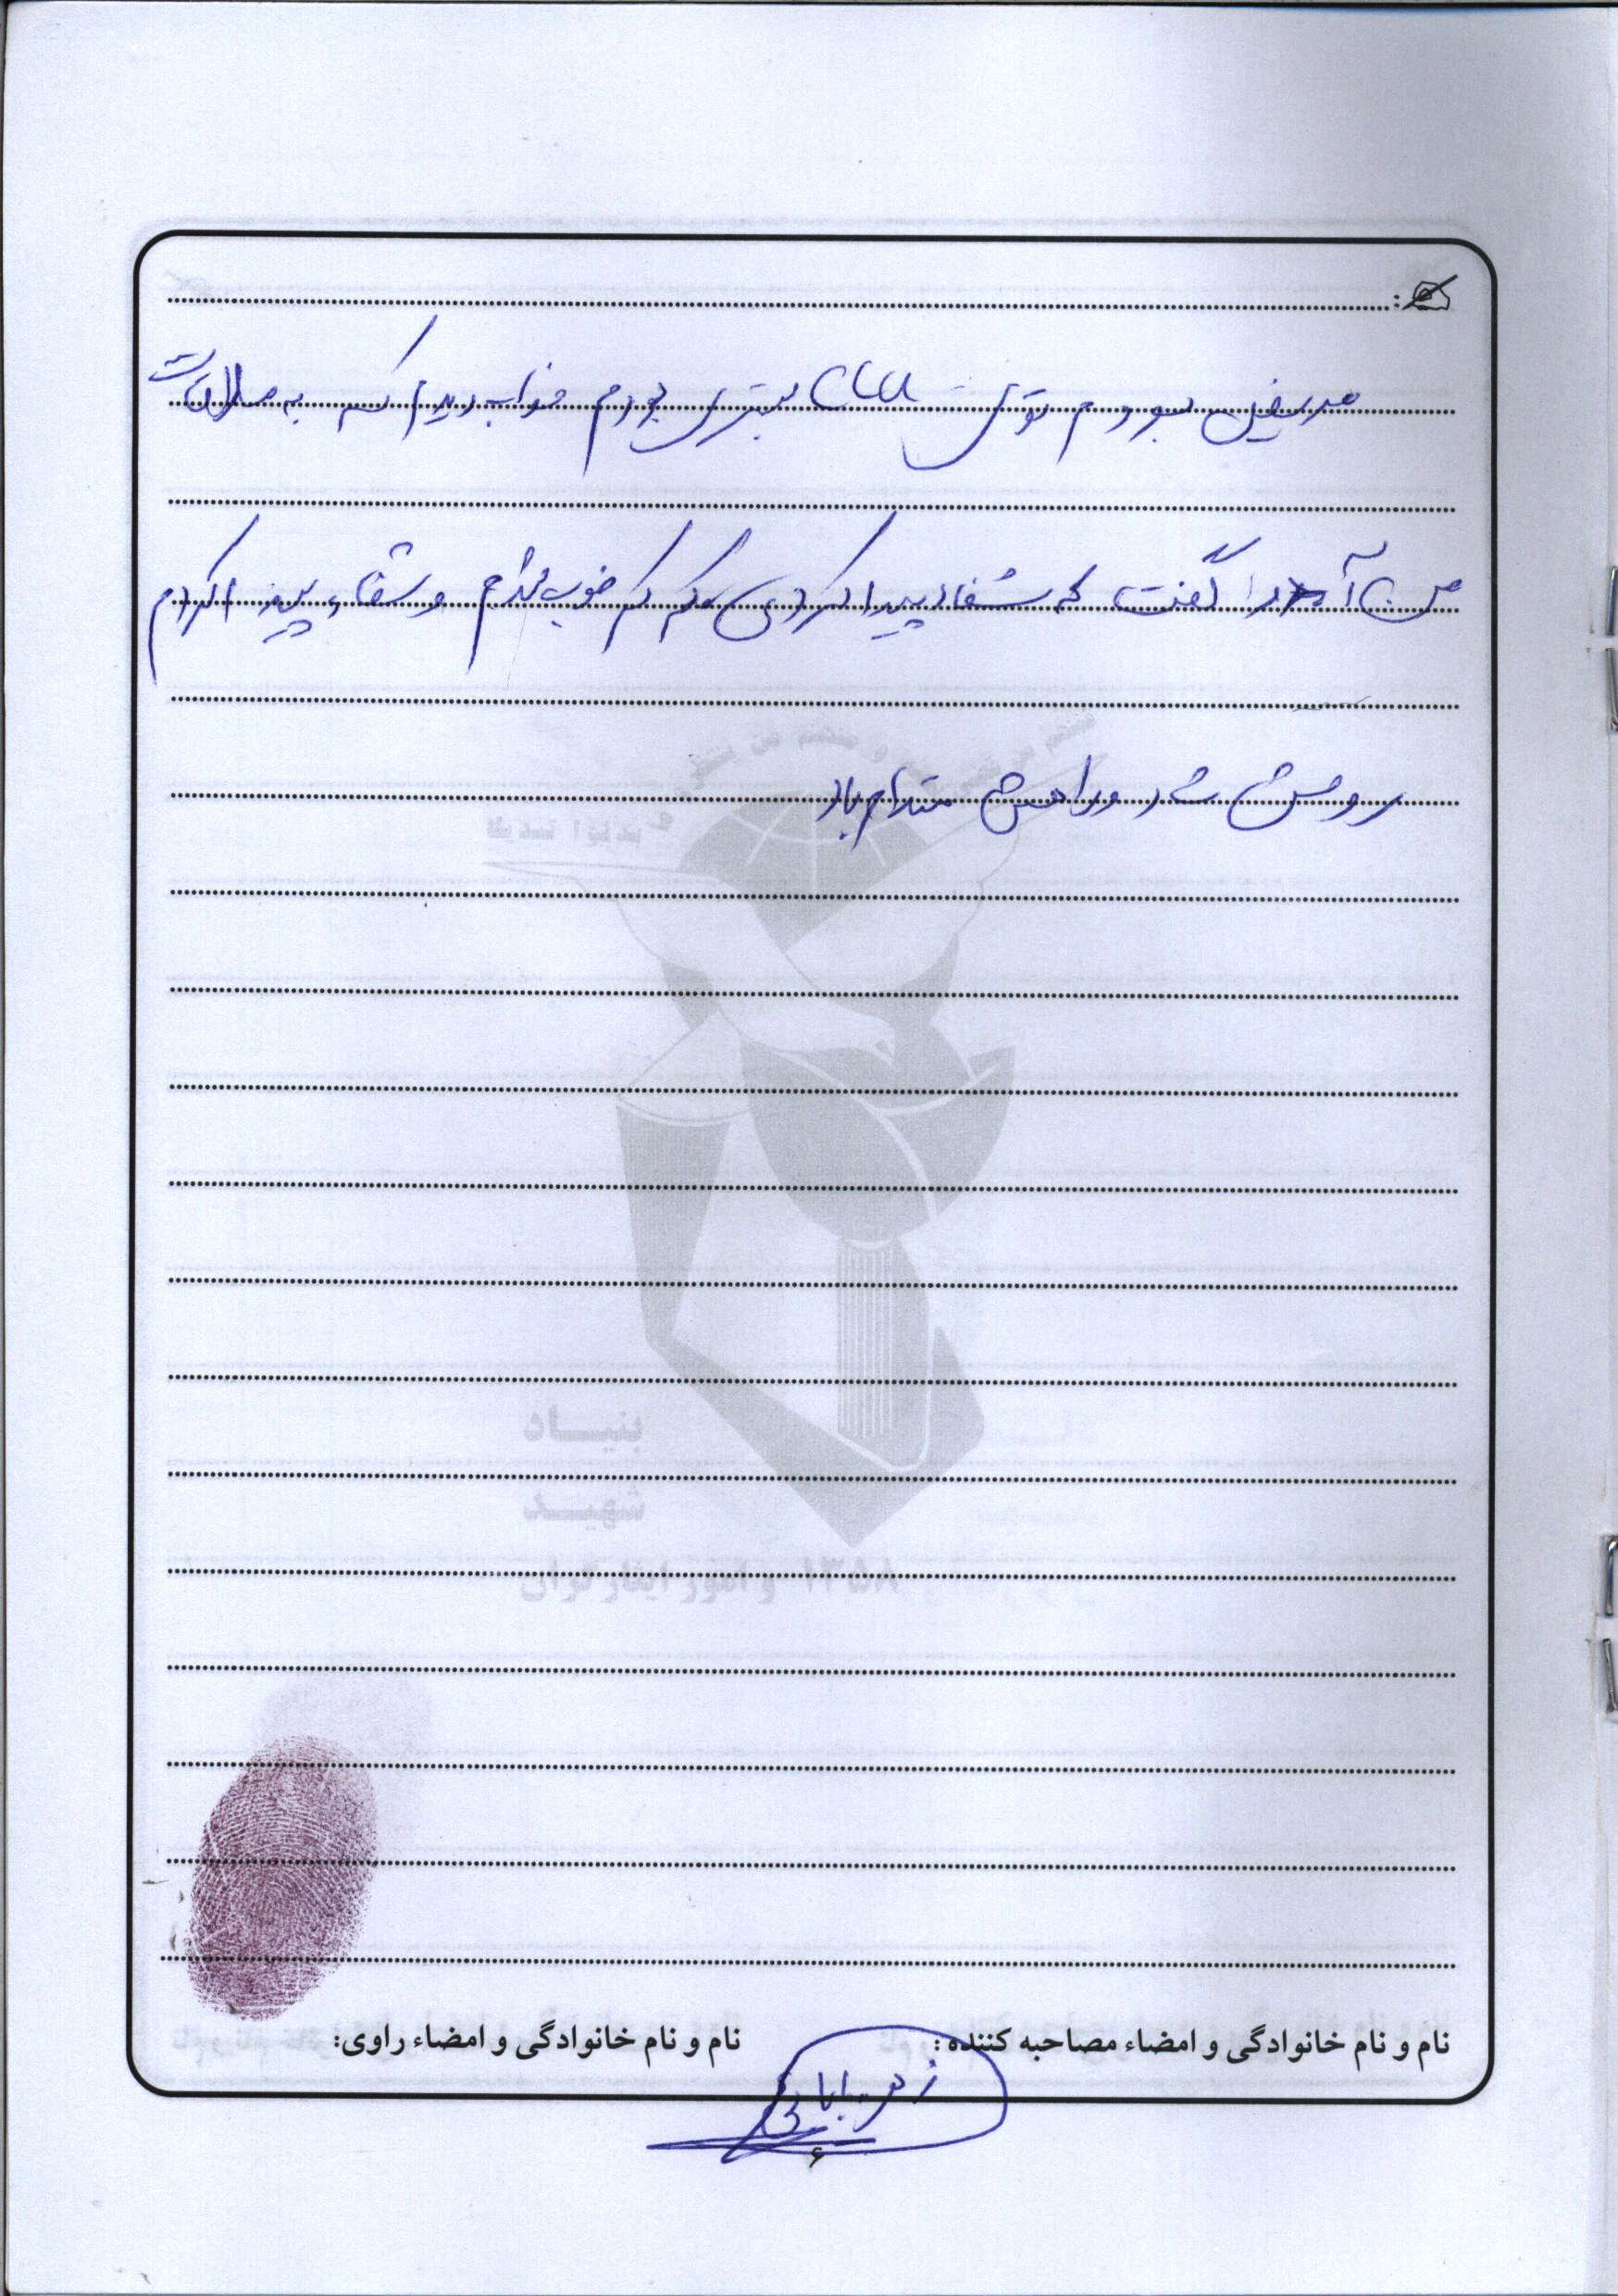 مریض بودم توی CCU بستری بودم خواب دیدم که به ملاقات
من آمد گفت که شفا پیدا کردی کم کم خوب شدم و شفاء پیدا کردم
روحش شاد و راهش مستدام باد
بنیاد
شهید
و امور ایثارگران ۱۳۵۸
نام و نام خانوادگی و امضاء مصاحبه کننده: نام و نام خانوادگی و امضاء راوی:
زهره بابائی
۶